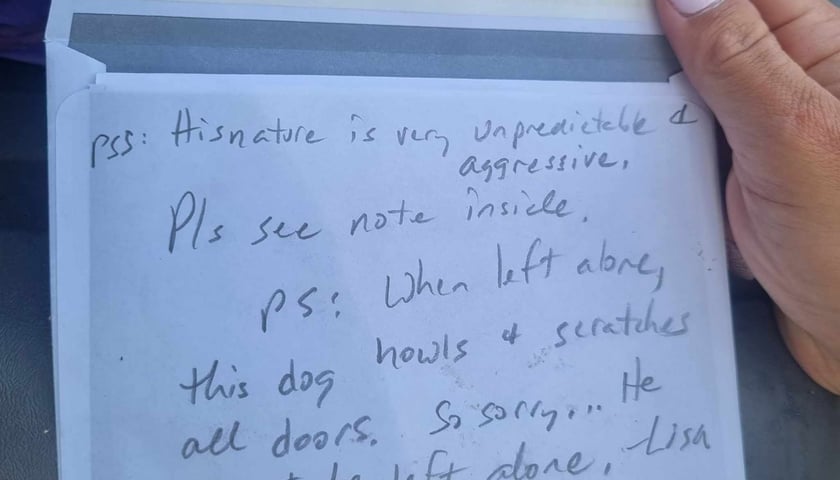 pss: Hisnature is very unpredictable &
aggressive.
Pls see note inside.
ps: When left alone,
this dog howls & scratches
all doors. So sorry... He
left alone. Lisa